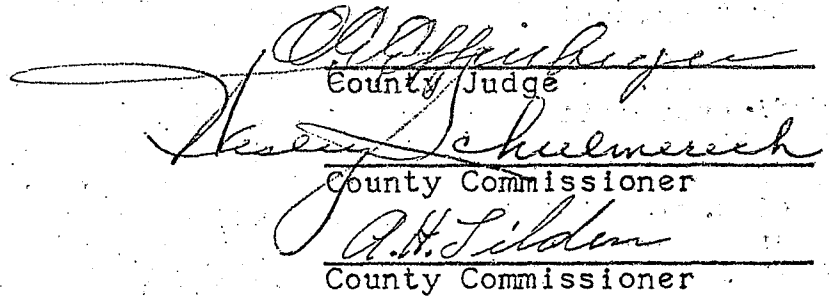 County Judge
Schulmerich
County Commissioner
A.H. Tilden
County Commissioner